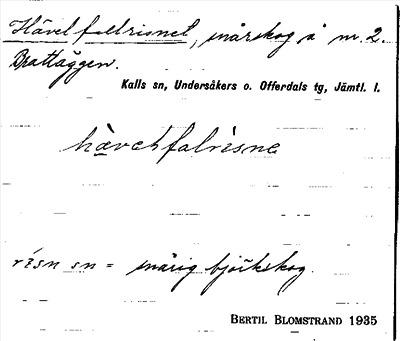 Hävelfallrisnet, snårskog å m. 2.
Brattäggen.
Kalls sn, Undersåkers o. Offerdals tg, Jämtl. l.
hävelfalrisne
risn sn = snårig björkskog.
BERTIL BLOMSTRAND 1935